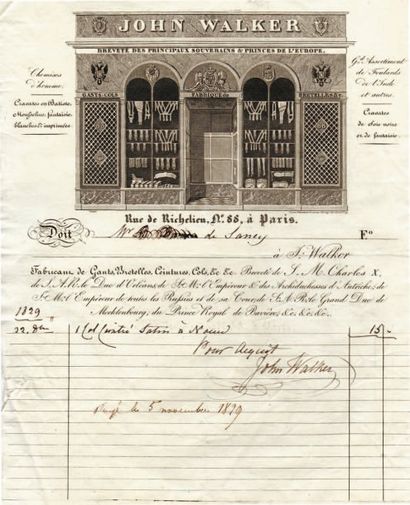 JOHN WALKER
BREVETÉ DES PRINCIPAUX SOUVERAINS & PRINCES DE L'EUROPE.
Chemises
d'homme.
Cravates en Batiste,
Mousseline, fantaisie,
blanches & imprimées.
GANTS, COLS
FABRIQUE DE
BRETELLES &c.
Gd. Assortiment
de Foulards
de l'Inde
et autres.
Cravates
de soie noire
et de fantaisie.
Rue de Richelieu, No. 88, à Paris.
Doit Mr de Sancy Fo
à J. Walker
Fabricant de Gants, Bretelles, Ceintures, Cols, &c &c. Breveté de S. M. Charles X,
de S. A. R. le Duc d'Orléans, de Sa Mté l'Empereur & des Archiduchesses d'Autriche; de
Sa Mté l'Empereur de toutes les Russies et de sa Cour, de S. A. R. le Grand Duc de
Mecklenbourg, du Prince Royal de Bavière, &c. &c. &c.
1829
22. 1 Col Satin à 15 -
Pour Acquit
John Walker
Payé le 5 novembre 1829